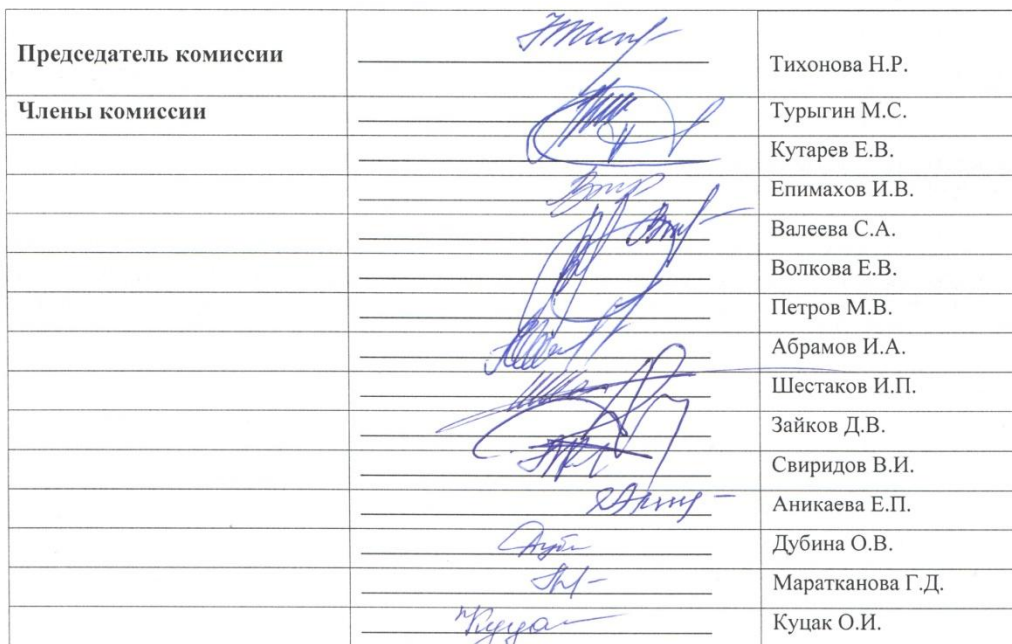 Председатель комиссии Тихонова Н.Р.
Члены комиссии Турыгин М.С.
Кутарев Е.В.
Епимахов И.В.
Валеева С.А.
Волкова Е.В.
Петров М.В.
Абрамов И.А.
Шестаков И.П.
Зайков Д.В.
Свиридов В.И.
Аникаева Е.П.
Дубина О.В.
Маратканова Г.Д.
Куцак О.И.